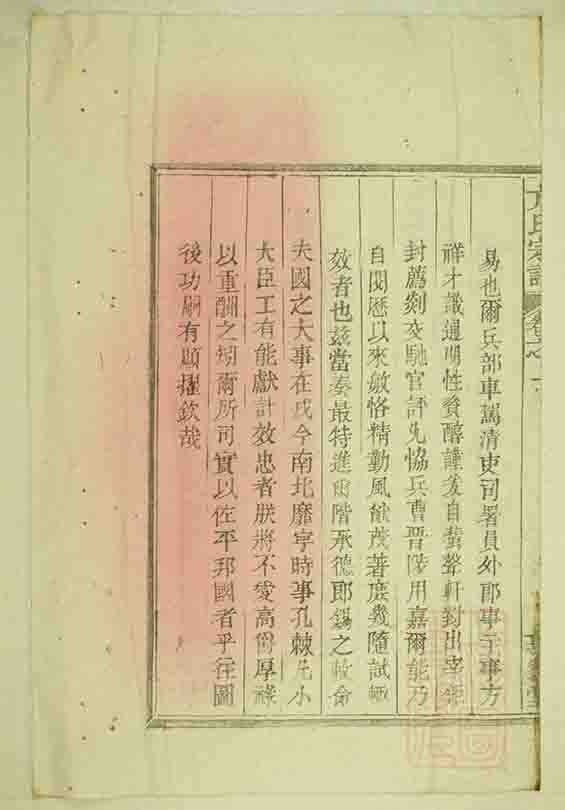 方氏宗譜 卷之一
易也爾兵部車駕清吏司署員外郎事主事方
祥才識通明性資醇謹爰自黌聲軒對出宰
封薦剡交馳官評允恊兵曹晉陟用嘉爾能乃
自閱歷以來敏恪精勤風猷茂著庶幾隨試輒
效者也茲當奏最特進爾階承德郎錫之敕命
夫國之大事在戎今南北靡寧時事孔棘凡小
大臣工有能獻計效忠者朕將不愛高爵厚祿
以重酬之矧爾所司實以佐平邦國者乎往圖
後功嗣有顯擢欽哉